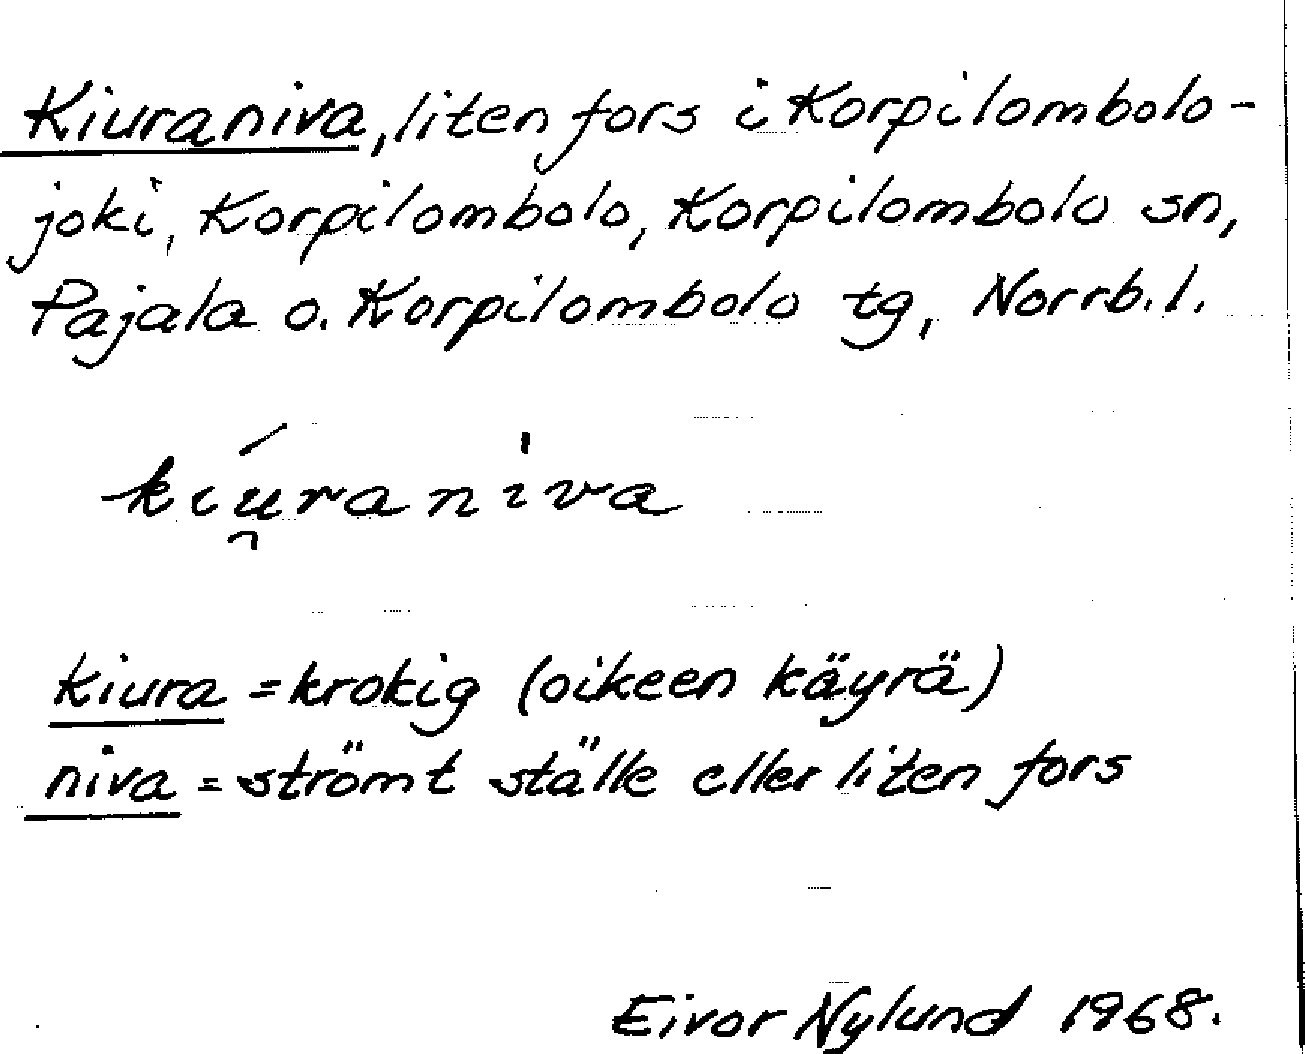 Kiuraniva, liten fors i Korpilombolo-
joki, Korpilombolo, Korpilombolo sn,
Pajala o. Korpilombolo tg, Norrb. l.
kiú̯raniva
kiura = krokig (oikeen käyrä)
niva = strömt ställe eller liten fors
Eivor Nylund 1968.